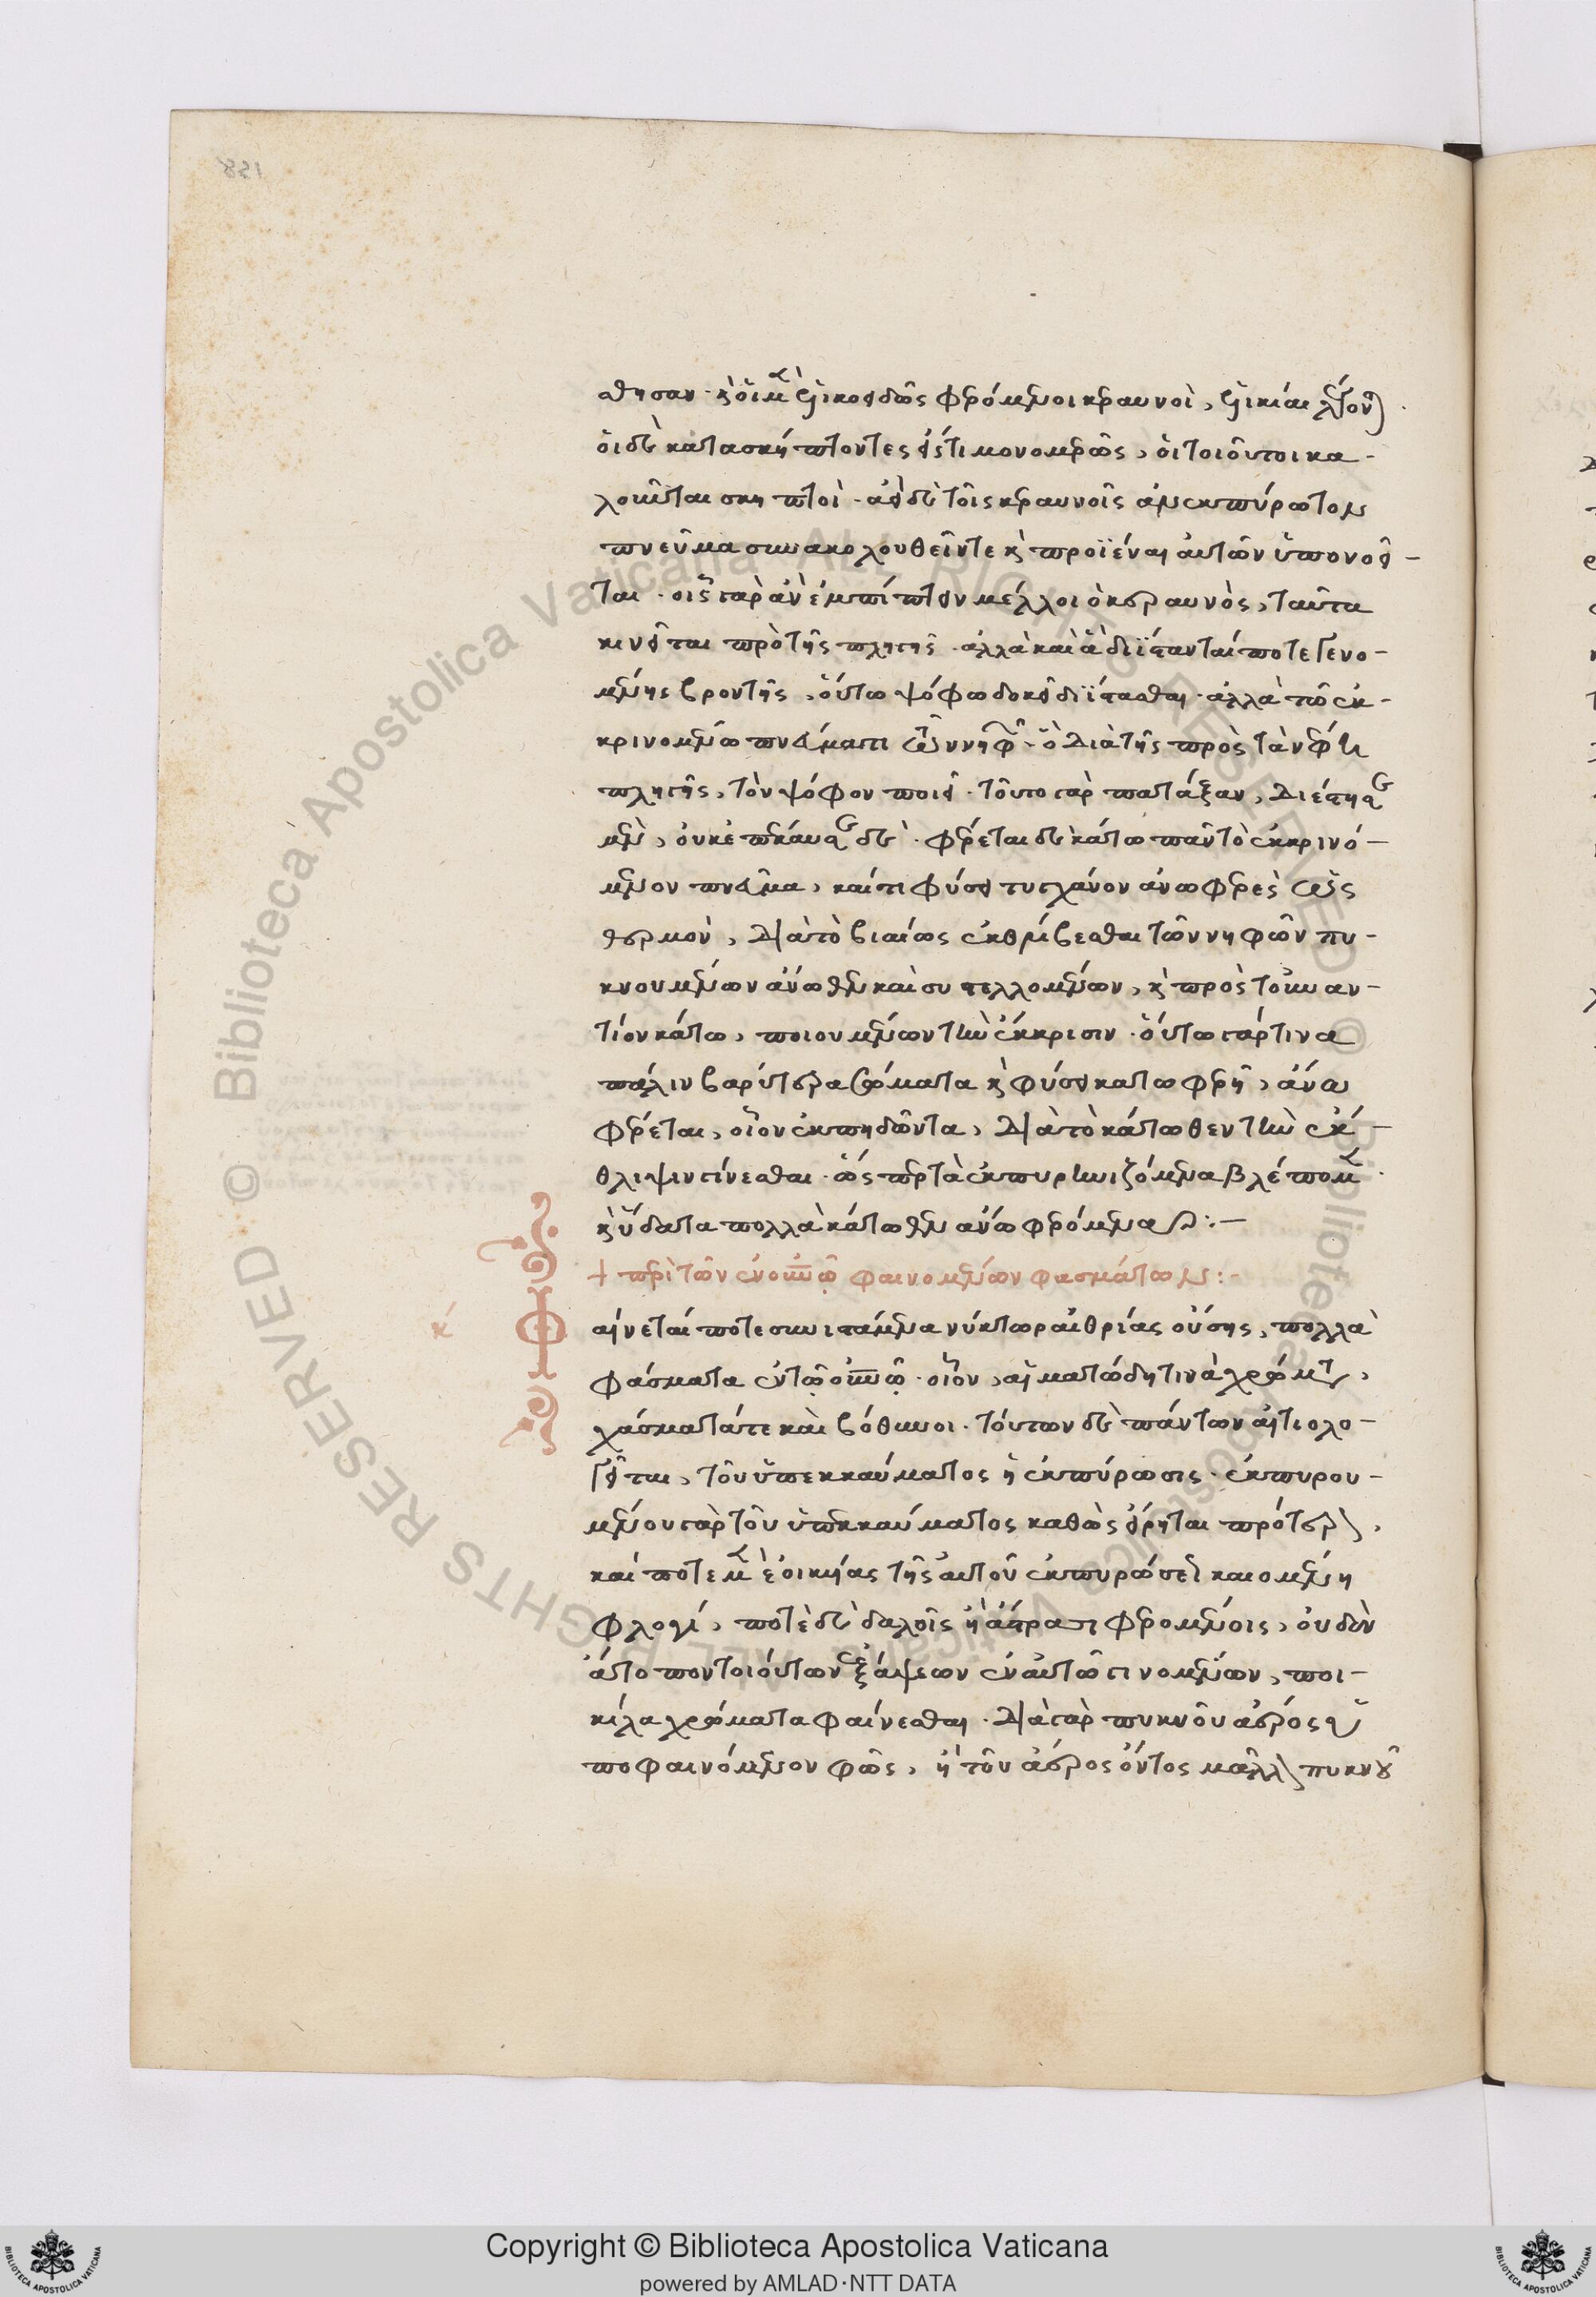 σθησαν · καὶ οἱ μὲν ἑλικοειδῶς φερόμενοι κεραυνοὶ, ἑλικίαι λέγονται ·
οἱ δὲ κατασκήπτοντες εἴς τι μονομερῶς, οἱ τοιοῦτοι κα-
λοῦνται σκηπτοί · ἀεὶ δὲ τοῖς κεραυνοῖς ἀνεκπύρωτον
πνεῦμα συνακολουθεῖν τε καὶ προϊέναι αὐτῶν ὑπονοεῖ-
ται · οἷς γὰρ ἂν ἐμπίπτειν μέλλοι ὁ κεραυνὸς, ταῦτα
κινεῖται πρὸ τῆς πληγῆς · ἀλλὰ καὶ ἃ διΐστανταί ποτε γενο-
μένης βροντῆς, οὔτω ψόφω δοκεῖ διΐστασθαι · ἀλλὰ τῶ ἐκ-
κρινομένω πνεύματι ἐκ τῶν νεφῶν · ὃ διὰ τῆς πρὸς τὰ νέφη
πληγῆς, τὸν ψόφον ποιεῖ · τοῦτο γὰρ πατάξαν, διέστησε
μὲν, οὐκ ἐπέκαυσε δέ · φέρεται δὲ κάτω πᾶν τὸ ἐκκρινό-
μενον πνεῦμα, καί τι φύσει τυγχάνον ἀνωφερὲς ὡς
θερμὸν, διὰ τὸ βιαίως ἐκθλίβεσθαι τῶν νεφῶν πυ-
κνουμένων ἄνωθεν καὶ συστελλομένων, καὶ πρὸς τοὐναν-
τίον κάτω, ποιουμένων τὴν ἔκκρισιν · οὕτω γάρ τινα
πάλιν βαρύτερα σώματα καὶ φύσει κατωφερῆ, ἄνω
φέρεται, οἷον ἐκπηδῶντα, διὰ τὸ κάτωθεν τὴν ἔκ-
θλιψιν γίνεσθαι · ὥσπερ τὰ ἐκπυρηνιζόμενα βλέπομεν ·
καὶ ὕδατα πολλὰ κάτωθεν ἄνω φερόμενα :-
+ περὶ τῶν ἐν οὐρανῶ φαινομένων φασμάτων :-
κ
Φαίνεταί ποτε συνιστάμενα νύκτωρ αἰθρίας οὔσης, πολλὰ
φάσματα ἐν τῶ οὐρανῶ · οἷον, αἱματώδη τινὰ χρώματα,
χάσματά τε καὶ βόθυνοι · τούτων δὲ πάντων αἰτιολο-
γεῖται, τοῦ ὑπεκκαύματος ἡ ἐκπύρωσις · ἐκπυρου-
μένου γὰρ τοῦ ὑπεκκαύματος καθὼς εἴρηται πρότερον,
καί ποτε μὲν ἐοικυίας τῆς αὐτοῦ ἐκπυρώσεως καιομένη
φλογί, ποτὲ δὲ δαλοῖς ἢ ἄστρασι φερομένοις, οὐδὲν
ἄτοπον τοιούτων ἐξάψεων ἐν αὐτῶ γινομένων, ποι-
κίλα χρώματα φαίνεσθαι · διὰ γὰρ πυκνοῦ ἀέρος ὑ
ποφαινόμενον φῶς, ἢ τοῦ ἀέρος ὄντος μᾶλλον πυκνοῦ
Copyright © Biblioteca Apostolica Vaticana
powered by AMLAD·NTT DATA